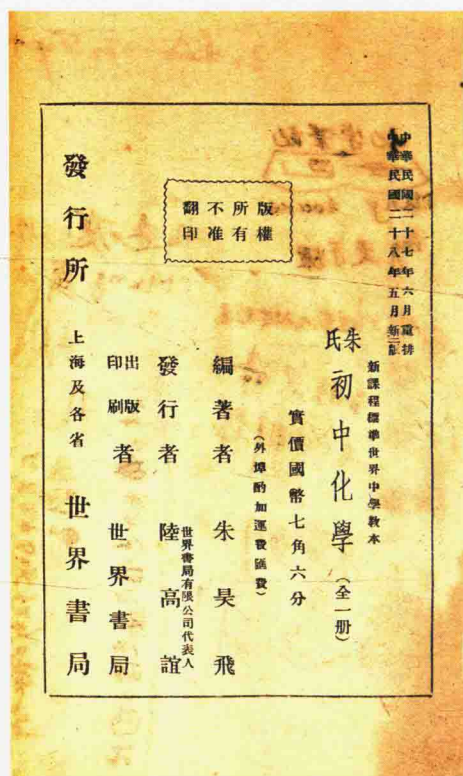 中華民國二十七年六月重排
中華民國二十八年五月新三版
新課程標準世界中學教本
朱氏初中化學（全一册）
實價國幣七角六分
（外埠酌加運費匯費）
版權
所有
不准
翻印
編著者　朱昊飛
發行者　世界書局有限公司代表人　陸高誼
出版印刷者　世界書局
發行所　上海及各省　世界書局